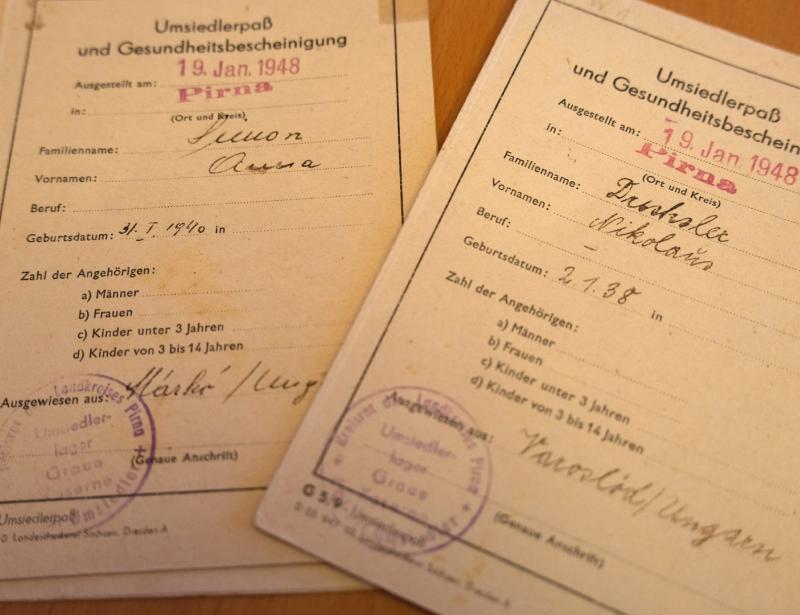 Umsiedlerpaß
und Gesundheitsbescheinigung
Ausgestellt am: 19. Jan. 1948
in: Pirna
(Ort und Kreis)
Familienname: Simon
Vornamen: Anna
Beruf:
Geburtsdatum: 31. I. 1940 in
Zahl der Angehörigen:
a) Männer
b) Frauen
c) Kinder unter 3 Jahren
d) Kinder von 3 bis 14 Jahren
Ausgewiesen aus: Márkó / Ung
(Genaue Anschrift)
Landkreises Pirna
Umsiedler-
lager
Graue
Kaserne
Umsiedlerpaß
Landesdruckerei Sachsen, Dresden A
Umsiedlerpaß
und Gesundheitsbeschein
Ausgestellt am: 19. Jan. 1948
in: Pirna
(Ort und Kreis)
Familienname: Drechsler
Vornamen: Nikolaus
Beruf: –
Geburtsdatum: 2.1.38 in
Zahl der Angehörigen:
a) Männer
b) Frauen
c) Kinder unter 3 Jahren
d) Kinder von 3 bis 14 Jahren
Ausgewiesen aus: Varoslöd/Ungarn
(Genaue Anschrift)
Pirna
Umsiedler-
lager
Graue
G 5/9 - Umsiedlerpaß
Sachsen, Dresden